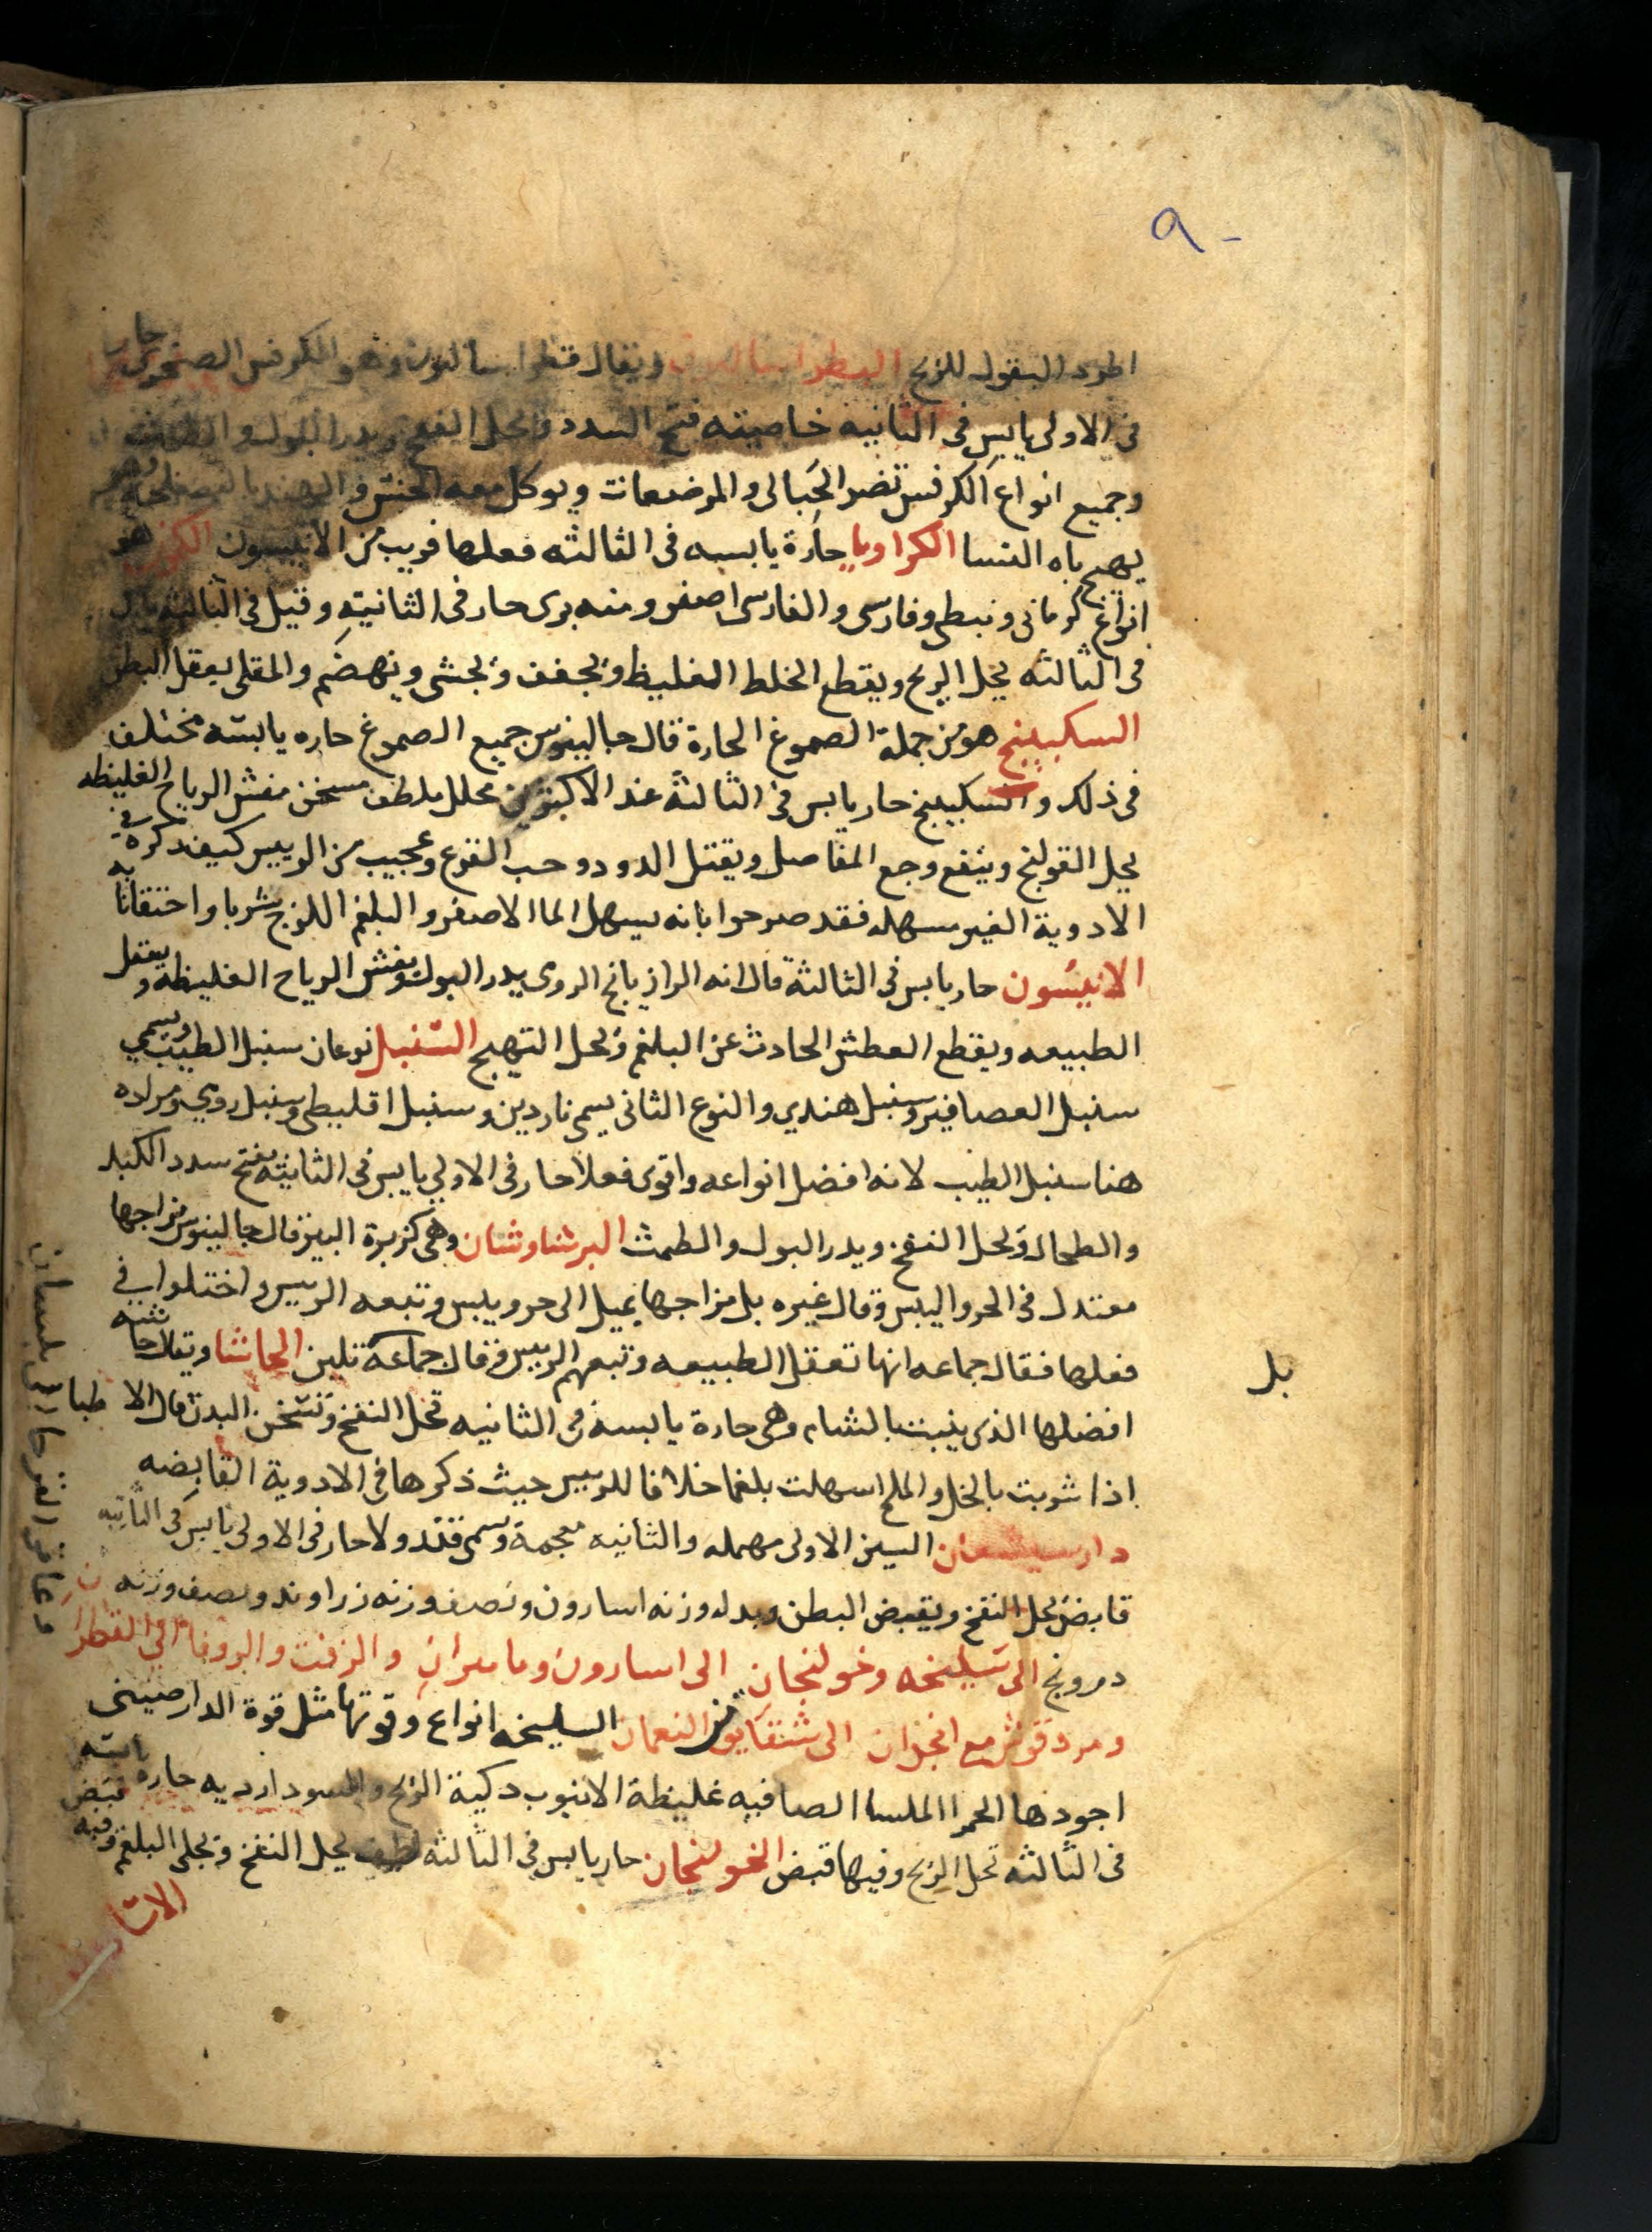 ٩-
اطرد البقول للريح البطراساليون ويقال فطراساليون وهو الكرفس الصخري حار
في الاولى يابس في الثانيه خاصيته فتح السدد ويحل النفخ ويدر البول والطمث
وجميع انواع الكرفس تضر الحبالى والمرضعات ويوكل معه الخس والهندبا
يهيج باه النسا الكراويا حارة يابسه في الثالثه فعلها قريب من الانيسون الكمون هو
انواع كرماني ونبطي وفارسي والفارسي اصفر ومنه بري حار في الثانية وقيل في الثالثه يابس
في الثالثه يحل الريح ويقطع الخلط الغليظ ويجفف ويجشي ويهضم والمقلي يعقل البطن
السكبينج هو من جملة الصموغ الحارة قال جالينوس جميع الصموغ حاره يابسه مختلف
في ذلك والسكبينج حار يابس في الثالثة عند الاكثرين محلل ملطف مسخن مفش الرياح الغليظه
يحل القولنج وينفع وجع المفاصل ويقتل الدود وحب القرع وعجيب من الرييس كيف ذكره في
الادوية الغير مسهله فقد صرحوا بانه يسهل الما الاصفر والبلغم اللزج شربا واحتقانا به
الانيسون حار يابس في الثالثة قال انه الرازيانج الرومي يدر البول ويفش الرياح الغليظه ويعقل
الطبيعه ويقطع العطش الحادث عن البلغم ويحل التهيج السنبل نوعان سنبل الطيب ويسمى
سنبل العصافير وسنبل هندي والنوع الثاني يسمى ناردين وسنبل اقليطي وسنبل رومي ومراده
هنا سنبل الطيب لانه افضل انواعه واقوى فعلا حار في الاولى يابس في الثانيه يفتح سدد الكبد
والطحال ويحل النفخ ويدر البول والطمث البرشاوشان وهي كزبرة البير قال جالينوس مزاجها
معتدل في الحر واليبس وقال غيره بل مزاجها يميل الى حر ويبس وتبعه الرييس واختلوا في
فعلها فقال جماعه انها تعقل الطبيعه وتبعهم الرييس وقال جماعة تلين الحاشا ويقال حاشيه
بل
افضلها الذي ينبت بالشام وهي حارة يابسة في الثانيه تحل النفخ وتسخن البدن قال الاطبا
اذا شربت بالخل والملح اسهلت بلغما خلافا للرييس حيث ذكرها في الادوية القابضه
دارسيشعان السين الاولى مهمله والثانيه معجمة وسمي قندولا حار في الاولى يابس في الثانيه
قابض يحل النفخ ويقبض البطن وبدله وزنه اسارون ونصف وزنه زراوند ونصف وزنه
درونج الى سليخه وخولنجان الى اسارون وماميران والزفت والروفا في القطران
ومردقوش مع انجدان الى شقايق النعمان السليخه انواع وقوتها مثل قوة الدارصيني
اجودها الحمرا الملسا الصافيه غليظة الانبوب دكية الريح والسودا رديه حاره يابسه
في الثالثه تحل الريح وفيها قبض الخولنجان حار يابس في الثالثه لطيف يحل النفخ ويجلي البلغم وفيه قبض